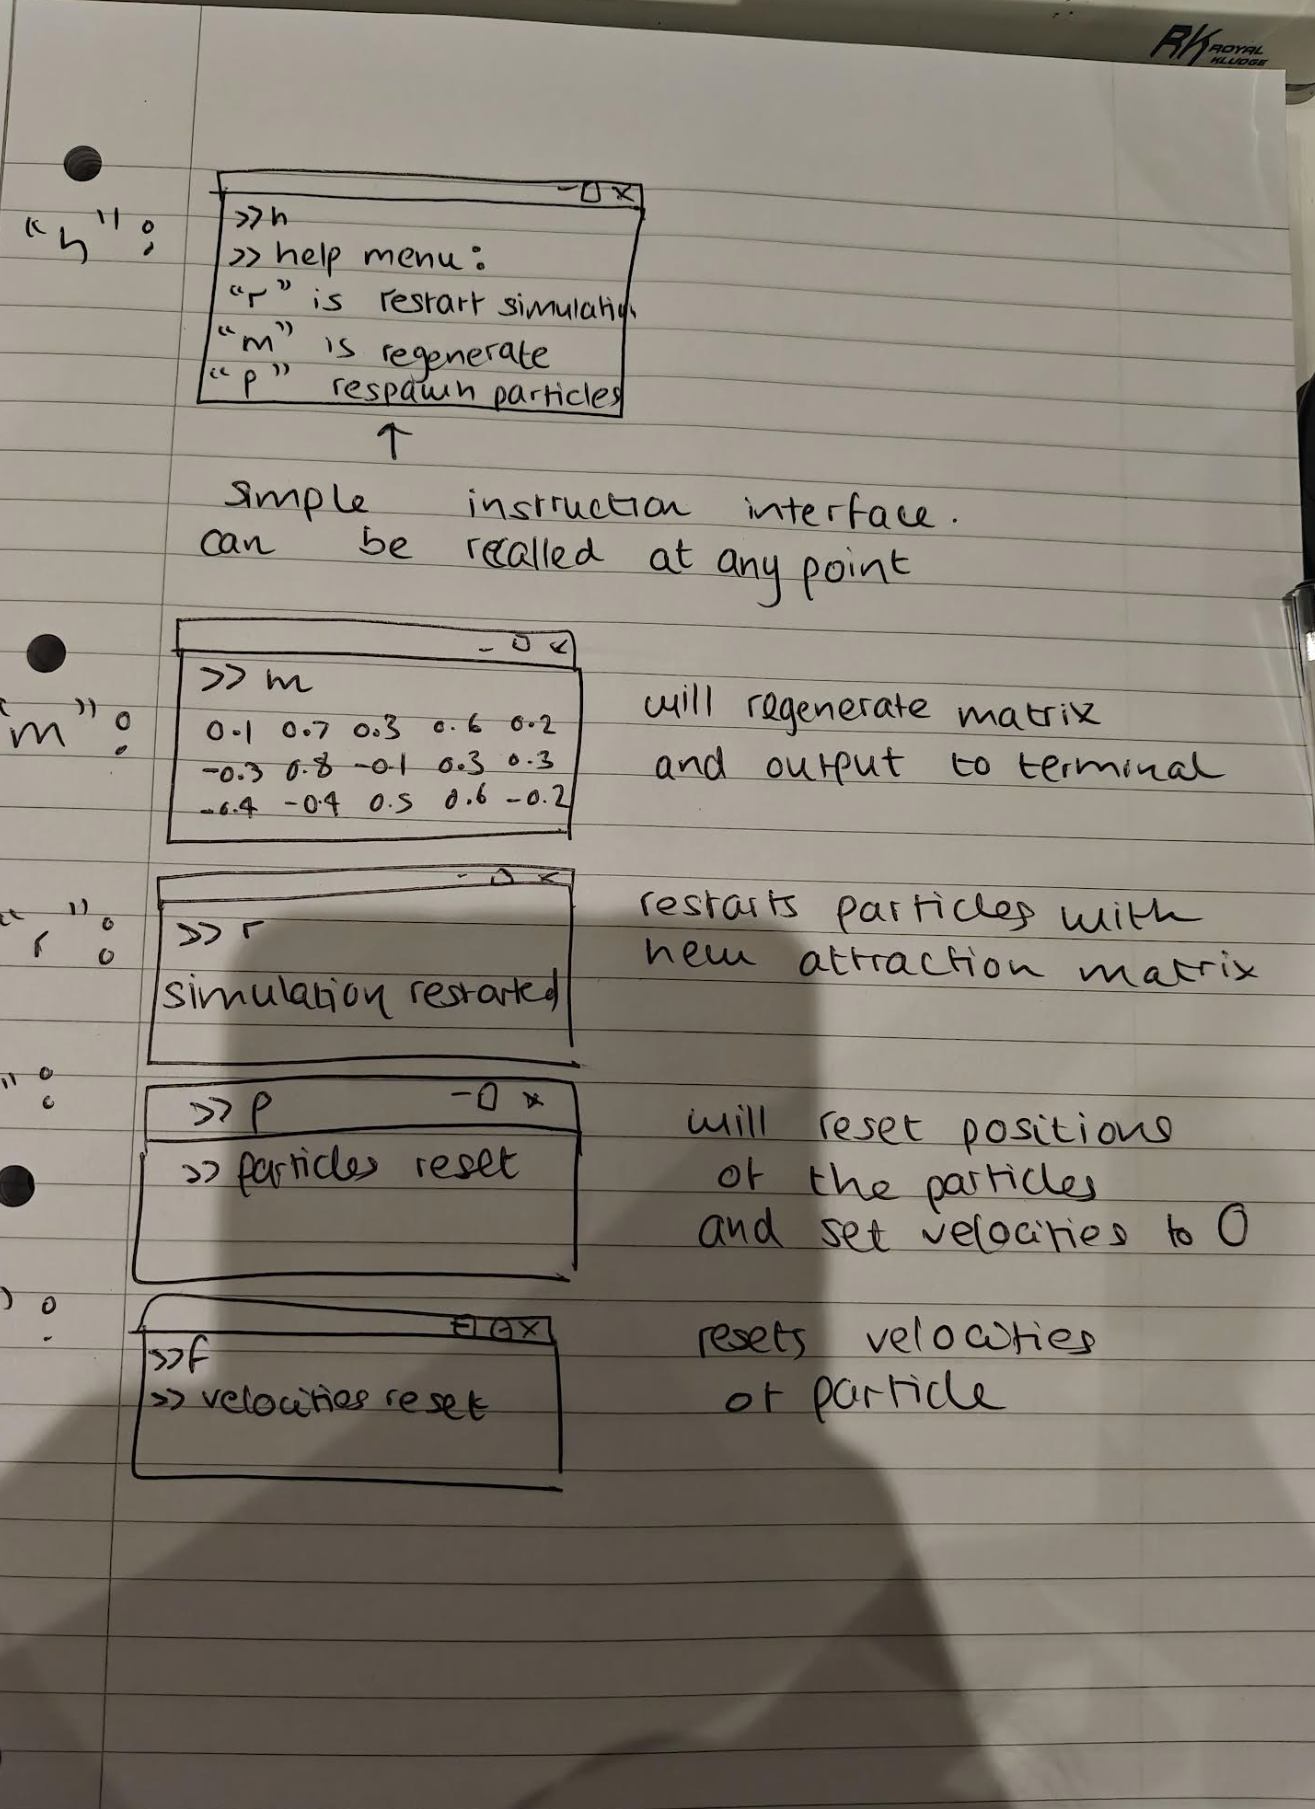 RK ROYAL KLUDGE
"h":
- 0 x
>>h
>> help menu:
"r" is restart simulation
"m" is regenerate
"p" respawn particles
↑
simple instruction interface.
can be recalled at any point
"m":
- 0 x
>> m
0.1 0.7 0.3 0.6 0.2
-0.3 0.8 -0.1 0.3 0.3
-0.4 -0.4 0.5 0.6 -0.2
will regenerate matrix
and output to terminal
"r":
- 0 x
>> r
simulation restarted
restarts particles with
new attraction matrix
":
>> p - 0 x
>> particles reset
will reset positions
of the particles
and set velocities to 0
":
- 0 x
>>f
>> velocities reset
resets velocities
of particle